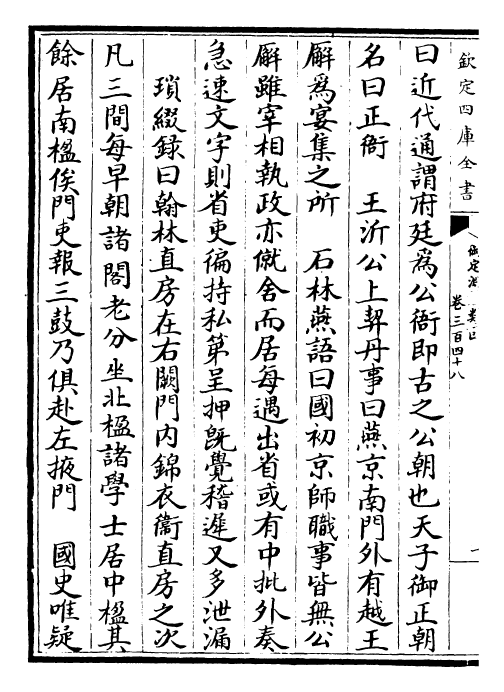 欽定四庫全書
卷三百四十八
曰近代通謂府廷為公衙即古之公朝也天子御正朝
名曰正衙　王沂公上契丹事曰燕京南門外有越王
廨為宴集之所　石林燕語曰國初京師職事皆無公
廨雖宰相執政亦僦舍而居每遇出省或有中批外奏
急速文字則省吏徧持私第呈押既覺稽遲又多泄漏
瑣綴録曰翰林直房在右闕門内錦衣衞直房之次
凡三間每早朝諸閣老分坐北楹諸學士居中楹其
餘居南楹俟門吏報三鼓乃俱赴左掖門　國史唯疑